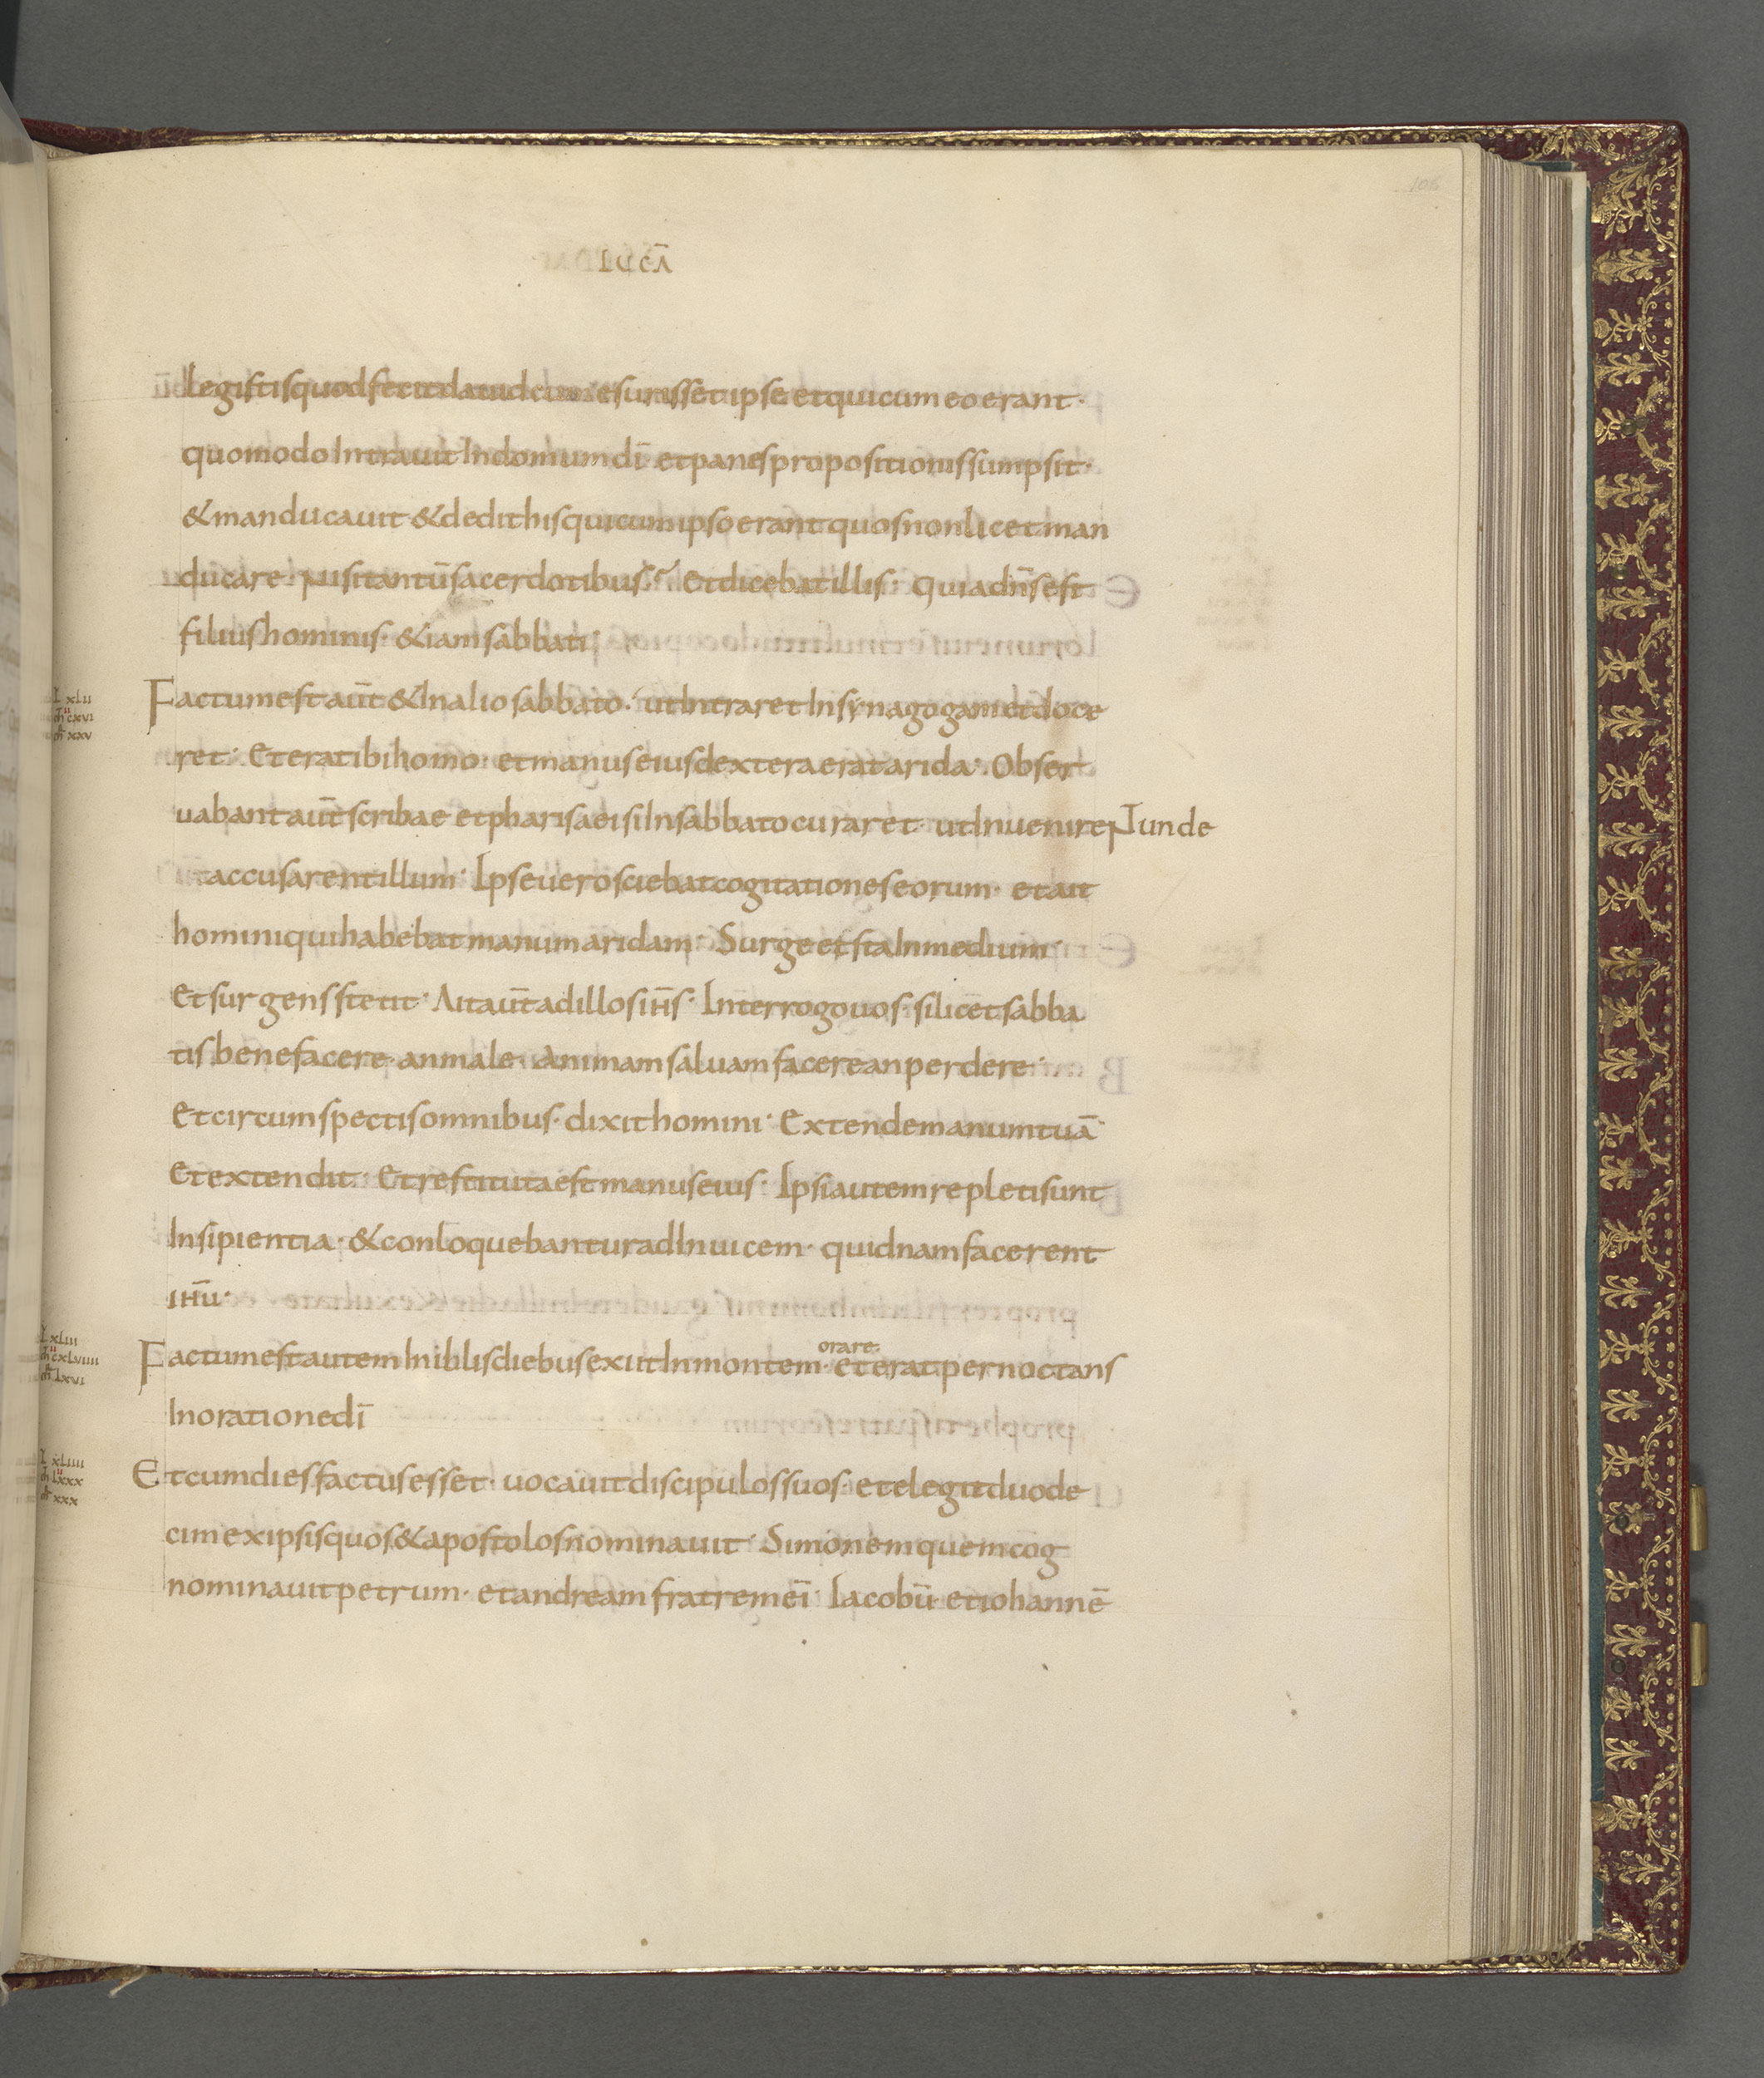 106
LUCĀ
legistis quod fecit dauid cum esurisset ipse et qui cum eo erant·
quomodo Intrauit In domum dī et panes propositionis sumpsit·
& manducauit & dedit his qui cum ipso erant quos non licet man
ducare nisi tantū sacerdotibus· Et dicebat illis· Quia dn̄s est
filius hominis· & iam sabbati·
Factum est aūt & In alio sabbato· ut Intraret In synagogam et doce
ret· Et erat ibi homo· et manus eius dextera erat arida· Obser
uabant aūt scribae et pharisaei si In sabbato curaret· ut Inuenirent unde
accusarent illum· Ipse uero sciebat cogitationes eorum· et ait
homini qui habebat manum aridam· Surge et sta In medium·
Et surgens stetit· Ait aūt ad illos iħs̄· Interrogo uos· si licet sabba
tis bene facere· an male· animam saluam facere an perdere·
Et circumspectis omnibus· dixit homini· Extende manum tuā·
Et extendit· Et restituta est manus eius· Ipsi autem repleti sunt
Insipientia· & conloquebantur ad Inuicem· quidnam facerent
iħū·
Factum est autem In illis diebus exiit In montem· orare· et erat pernoctans
In oratione dī
Et cum dies factus esset· uocauit discipulos suos· et elegit duode
cim ex ipsis quos & apostolos nominauit· Simonem quem cog
nominauit petrum· et andream fratrem eī· Iacobū· et iohannē
L xlii
cxvi
xxv
L xliii
cxlviiii
lxvi
L xliiii
lxxx
xxx